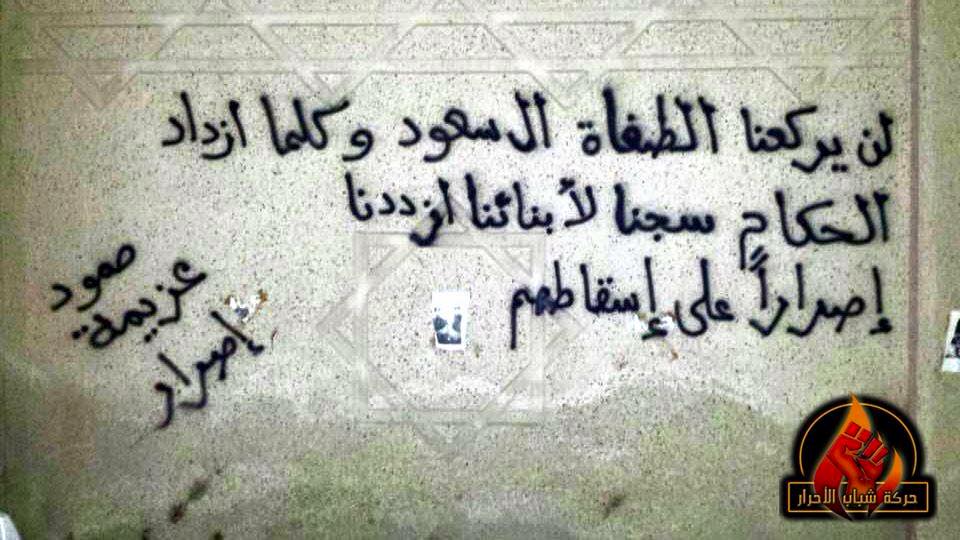 لن يركعنا الطغاة ال سعود وكلما ازداد
الحكام سجنا لأبنائنا ازددنا
إصراراً على إستقاطهم
صمود
عزيمة
إصرار
حركة شباب الأحرار